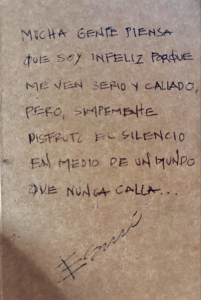 MUCHA GENTE PIENSA
QUE SOY INFELIZ PORQUE
ME VEN SERIO Y CALLADO,
PERO, SIMPEMENTE
DISFRUTO EL SILENCIO
EN MEDIO DE UN MUNDO
QUE NUNCA CALLA...